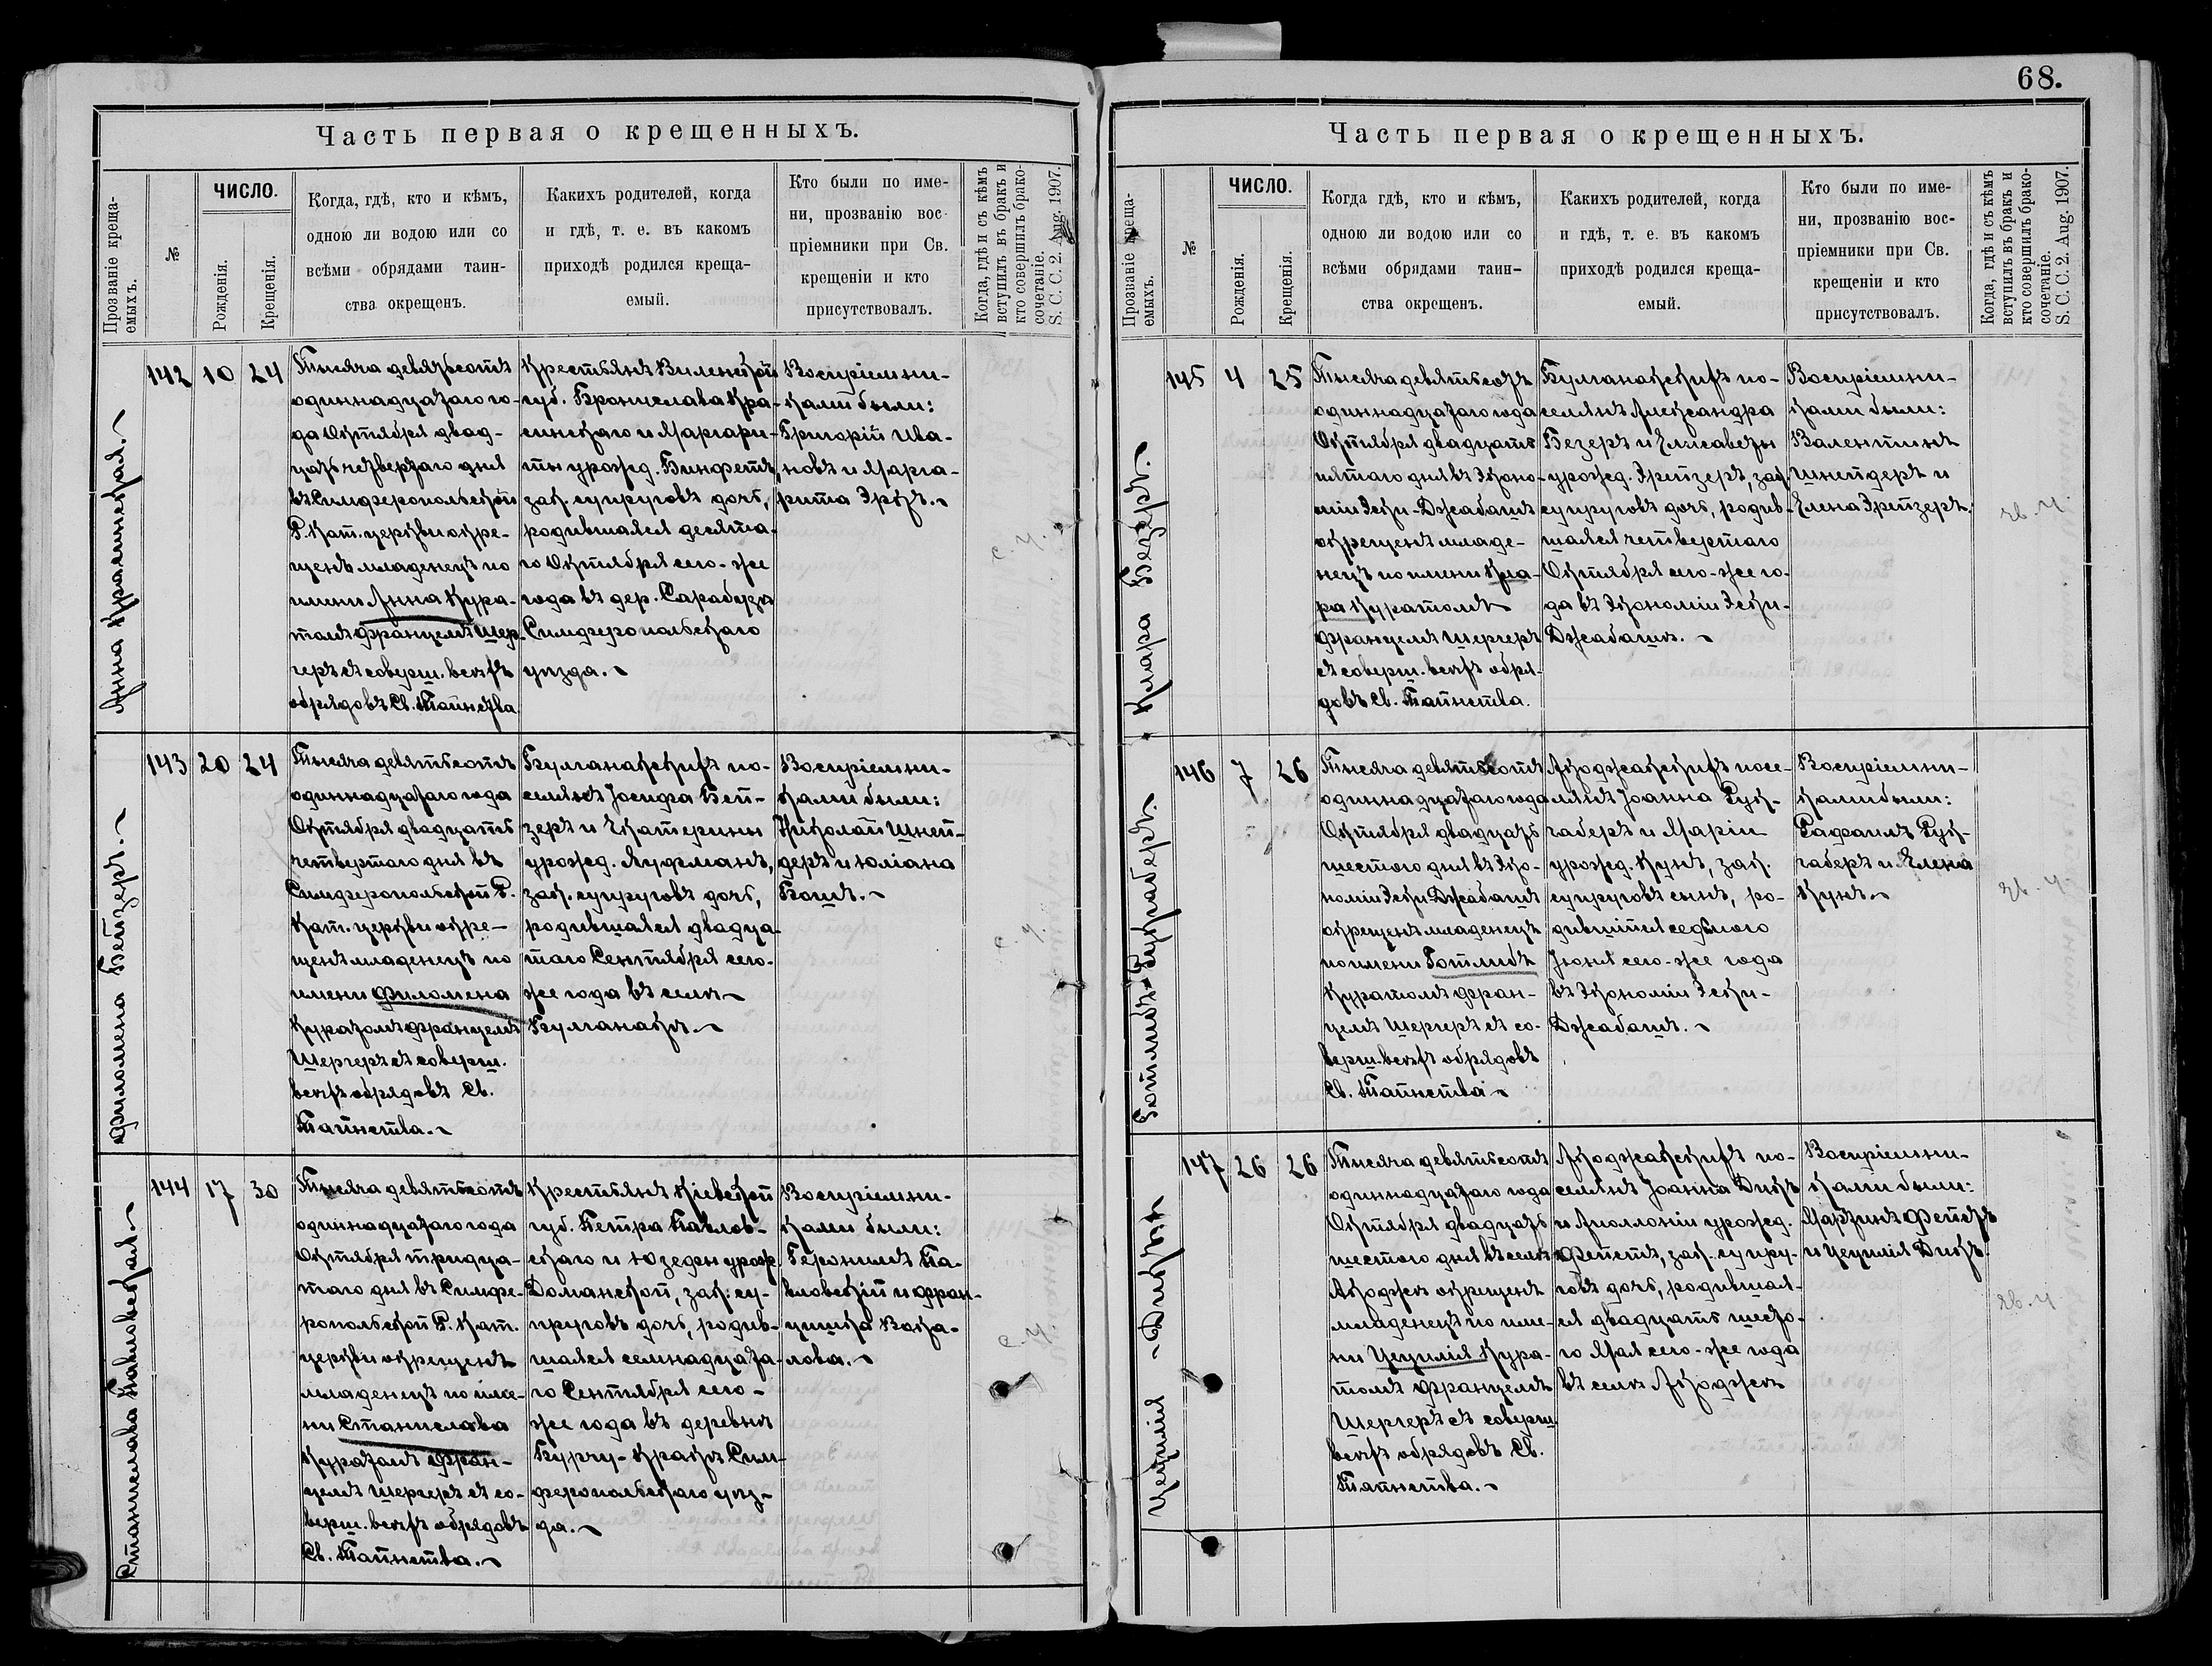 68.
Часть первая о крещенныхъ.
Прозваніе креща-
емыхъ.
№
ЧИСЛО.
Рожденія.
Крещенія.
Когда, гдѣ, кто и кѣмъ,
одною ли водою или со
всѣми обрядами таин-
ства окрещенъ.
Какихъ родителей, когда
и гдѣ, т. е. въ какомъ
приходѣ родился креща-
емый.
Кто были по име-
ни, прозванію вос-
пріемники при Св.
крещеніи и кто
присутствовалъ.
Когда, гдѣ и съ кѣмъ
вступилъ въ бракъ и
кто совершилъ брако-
сочетаніе.
S. C. C. 2. Aug. 1907.
Анна Красинская.
142 10 24
Тысяча девятьсотъ
одиннадцатаго го-
да Октября двад-
цать четвертаго дня
въ Симферопольской
Р. Кат. церкви окре-
щенъ младенецъ по
имени Анна Кура-
томъ Францемъ Шер-
геръ съ соверш. всѣхъ
обрядовъ Св. Таинства
Крестьянъ Виленской
губ. Бронислава Кра-
синскаго и Маргари-
ты урожд. Винфетъ,
зак. супруговъ дочь,
родившаяся десята-
го Октября сего-же
года въ дер. Сарабузъ
Симферопольскаго
уѣзда.
Воспріемни-
ками были:
Григорій Ива-
новъ и Марга-
рита Эркъ.
с. у.
Филомена Бейзеръ.
143 20 24
Тысяча девятьсотъ
одиннадцатаго года
Октября двадцать
четвертого дня въ
Симферопольской Р.
Кат. церкви окре-
щенъ младенецъ по
имени Филомена
Куратомъ Францемъ
Шергеръ съ соверш.
всѣхъ обрядовъ Св.
Таинства.
Булганакскихъ по-
селянъ Іосифа Бей-
зеръ и Екатерины
урожд. Гуфманъ,
зак. супруговъ дочь,
родившаяся двадца-
таго Сентября сего-
же года въ селѣ
Булганакъ.
Воспріемни-
ками были:
Николай Шней-
деръ и Юліана
Бошъ.
с. у.
Станислава Павловская
144 17 30
Тысяча девятьсотъ
одиннадцатаго года
Октября тридца-
таго дня въ Симфе-
ропольской Р. Кат.
церкви окрещенъ
младенецъ по име-
ни Станислава
Куратомъ Фран-
цемъ Шергеръ съ со-
верш. всѣхъ обрядовъ
Св. Таинства.
Крестьянъ Кіевской
губ. Петра Павлов-
скаго и Юзефы урож
Доманской, зак. су-
пруговъ дочь, родив-
шаяся семнадцата-
го Сентября сего-
же года въ деревнѣ
Бурчу-Кракъ Сим-
феропольскаго уѣз-
да.
Воспріемни-
ками были:
Геронимъ Па-
вловскій и Фран-
цишка Вака-
лова.
с. у.
Часть первая о крещенныхъ.
Прозваніе креща-
емыхъ.
№
ЧИСЛО.
Рожденія.
Крещенія.
Когда гдѣ, кто и кѣмъ,
одною ли водою или со
всѣми обрядами таин-
ства окрещенъ.
Какихъ родителей, когда
и гдѣ, т. е. въ какомъ
приходѣ родился креща-
емый.
Кто были по име-
ни, прозванію вос-
пріемники при Св.
крещеніи и кто
присутствовалъ.
Когда, гдѣ и съ кѣмъ
вступилъ въ бракъ и
кто совершилъ брако-
сочетаніе.
S. C. C. 2. Aug. 1907.
Клара Безеръ.
145 4 25
Тысяча девятьсотъ
одиннадцатаго года
Октября двадцать
пятаго дня въ Эконо-
міи Эски-Джабашъ
окрещенъ младе-
нецъ по имени Кла-
ра Куратомъ
Францемъ Шергеръ
съ соверш. всѣхъ обря-
довъ Св. Таинства.
Булганакскихъ по-
селянъ Александра
Безеръ и Елисаветы
урожд. Эрейзеръ, зак.
супруговъ дочь, родив-
шаяся четвертаго
Октября сего-же го-
да въ Экономіи Эски-
Джабашъ.
Воспріемни-
ками были:
Валентинъ
Шнейдеръ и
Елена Эрейзеръ.
зв. у.
Готлибъ Рукгаберъ.
146 7 26
Тысяча девятьсотъ
одиннадцатаго года
Октября двадцать
шестого дня въ Эко-
номіи Эски-Джабашъ
окрещенъ младенецъ
по имени Готлибъ
Куратомъ Фран-
цемъ Шергеръ съ со-
верш. всѣхъ обрядовъ
Св. Таинства
Акоджакскихъ посе-
лянъ Іоанна Рук-
габеръ и Маріи
урожд. Кунъ, зак.
супруговъ сынъ, ро-
дившійся седьмого
Іюня сего-же года
въ Экономіи Эски-
Джабашъ.
Воспріемни-
ками были:
Рафаилъ Рук-
габеръ и Елена
Кунъ.
зв. у.
Цецилія Дикъ
147 26 26
Тысяча девятьсотъ
одиннадцатаго года
Октября двадцать
шестого дня въ селѣ
Акоджа окрещенъ
младенецъ по име-
ни Цецилія Кура-
томъ Францемъ
Шергеръ съ соверш.
всѣхъ обрядовъ Св.
Таинства.
Акоджакскихъ по-
селянъ Іоанна Дикъ
и Аполлоніи урожд.
Фейстъ, зак. супру-
говъ дочь, родившая-
ся двадцать шесто-
го Мая сего-же года
въ селѣ Акоджа
Воспріемни-
ками были:
Мартинъ Фейстъ
и Цецилія Дикъ.
зв. у.